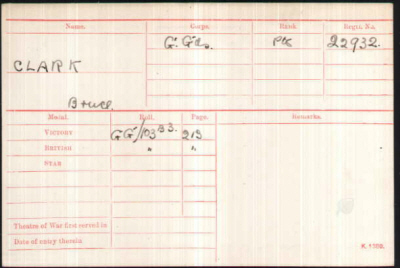 Name. Corps. Rank. Regtl. No.
G. Gds. Pte 22932.
CLARK
Bruce.
Medal. Roll. Page. Remarks.
VICTORY GG/103 B3. 213
BRITISH " "
STAR
Theatre of War first served in
Date of entry therein
K. 1380.